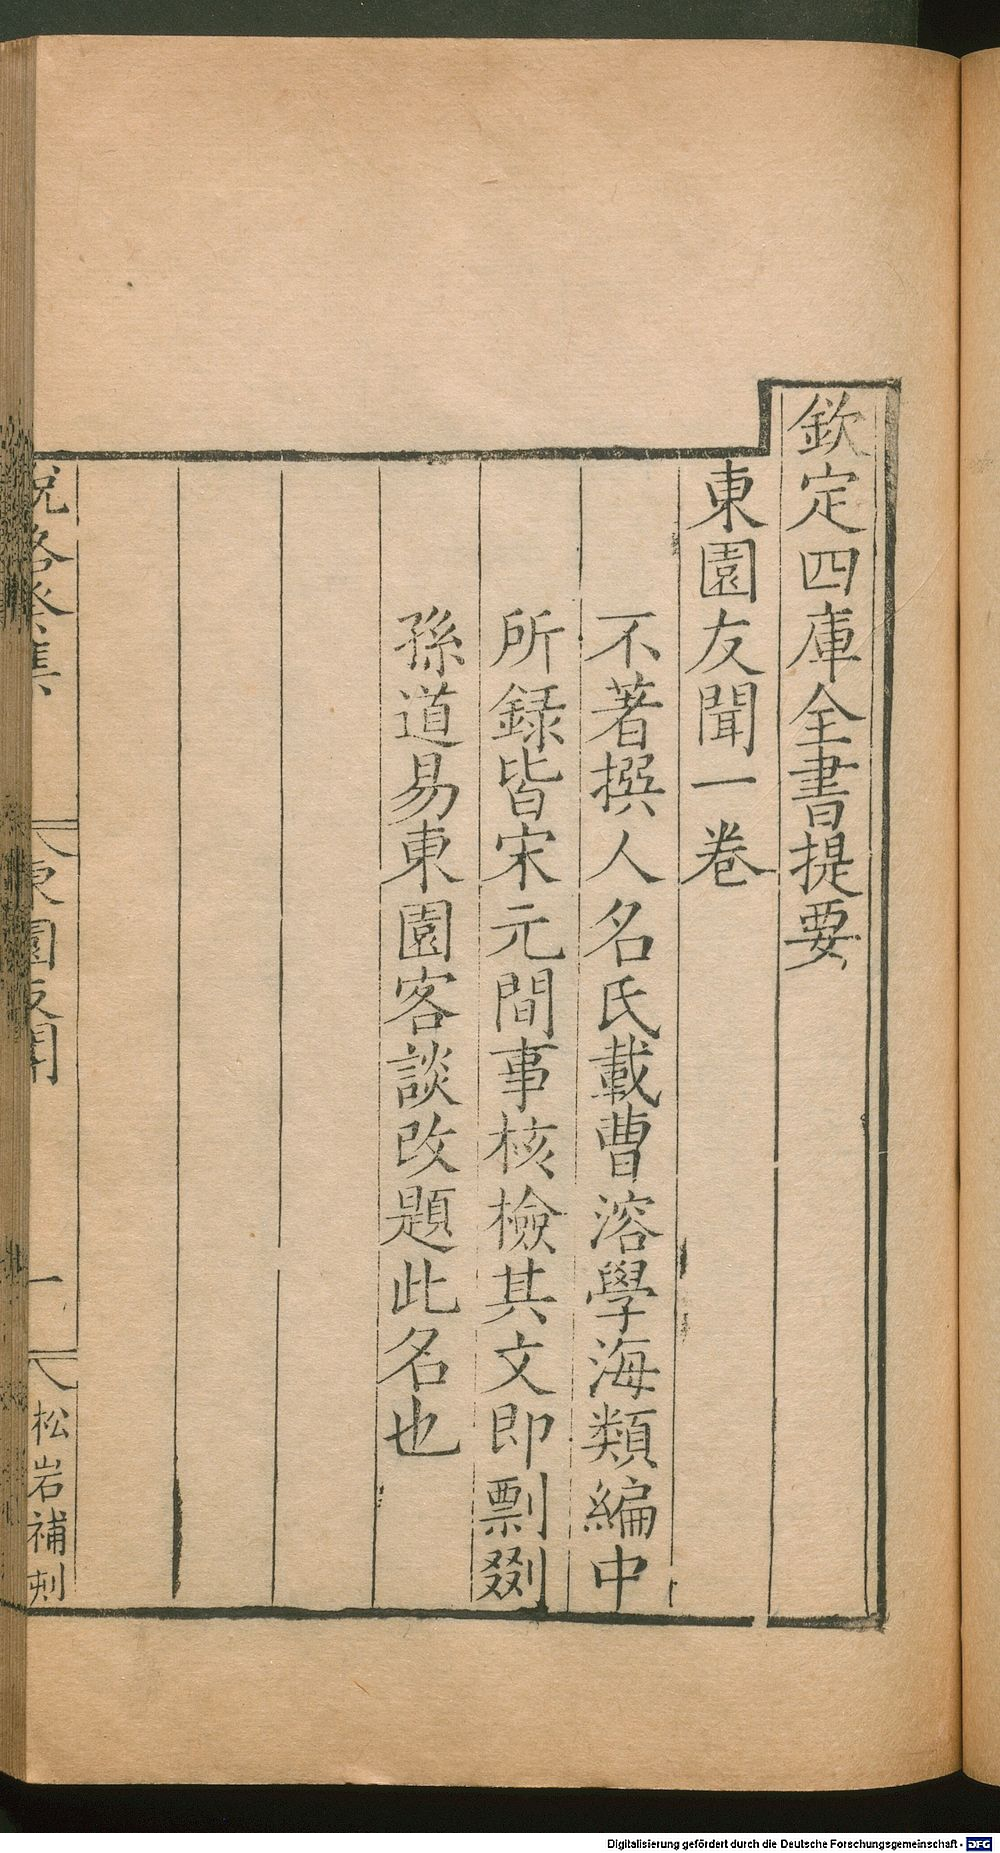 欽定四庫全書提要
東園友聞一卷
不著撰人名氏載曹溶學海類編中
所録皆宋元間事核檢其文即剽剟
孫道易東園客談改題此名也
東園友聞
一
松岩補刺
Digitalisierung gefördert durch die Deutsche Forschungsgemeinschaft - DFG